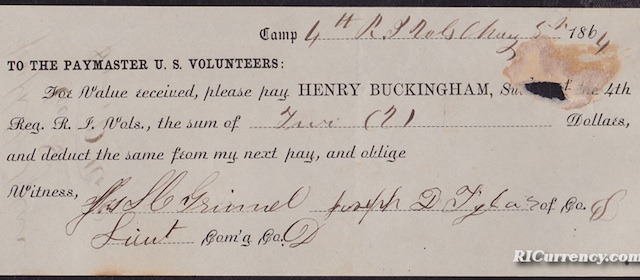 Camp 4th R I Vols May 5th 1864
TO THE PAYMASTER U. S. VOLUNTEERS:
For Value received, please pay HENRY BUCKINGHAM, of the 4th
Reg. R. I. Vols., the sum of Two (2) Dollars,
and deduct the same from my next pay, and oblige
Witness,
Grinnel Joseph D Tylor of Co. D
Lieut Com'g Co. D
RICurrency.com